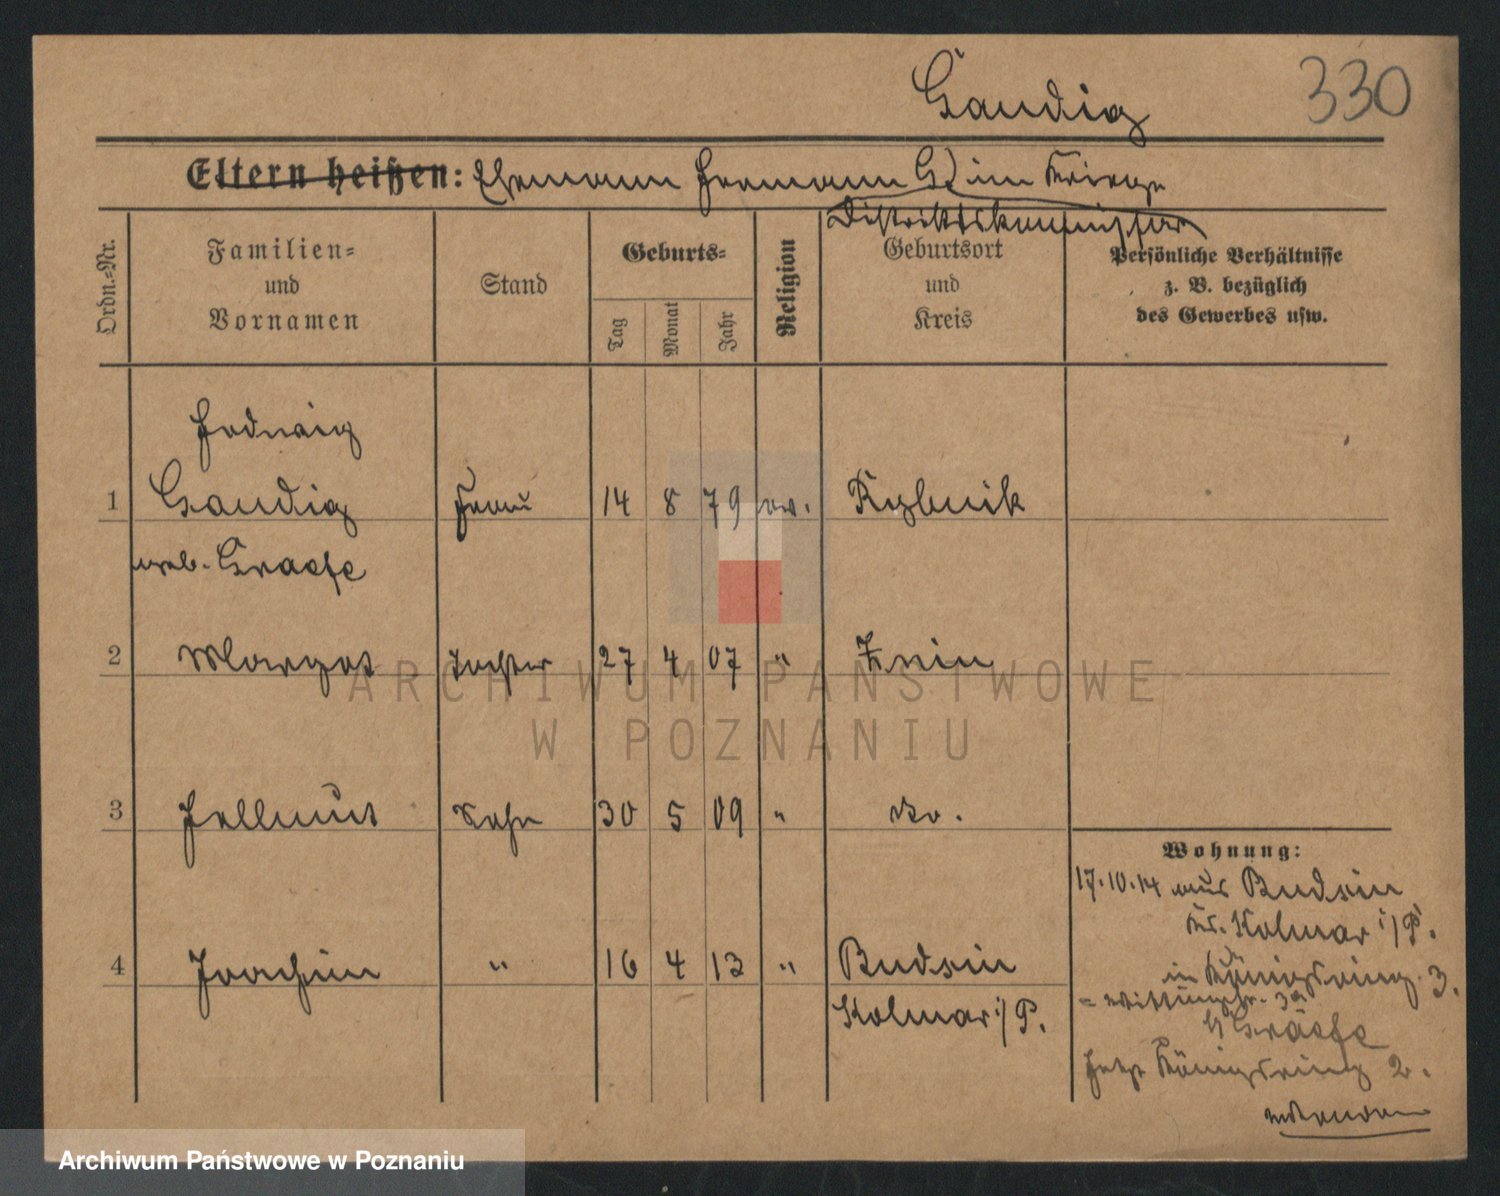 Gaudig
330
Eltern heißen: Ehemann Hermann G. im Kriege
Distriktskommissar
Ordn.-Nr.
Familien-
und
Vornamen
Stand
Geburts-
Tag
Monat
Jahr
Religion
Geburtsort
und
Kreis
Persönliche Verhältnisse
z. B. bezüglich
des Gewerbes usw.
Hedwig
1 Gaudig Frau 14 8 79 ev. Rybnik
geb. Graefe
2 Margot Tochter 27 4 07 " Znin
3 Hellmut Sohn 30 5 09 " do.
Wohnung:
17.10.14 aus Budsin
Kr. Kolmar i/P.
4 Joachim " 16 4 13 " Budsin
in Königsring 3.
Kolmar i/P.
b/ Graefe
Königsring 2.
ARCHIWUM PAŃSTWOWE
W POZNANIU
Archiwum Państwowe w Poznaniu